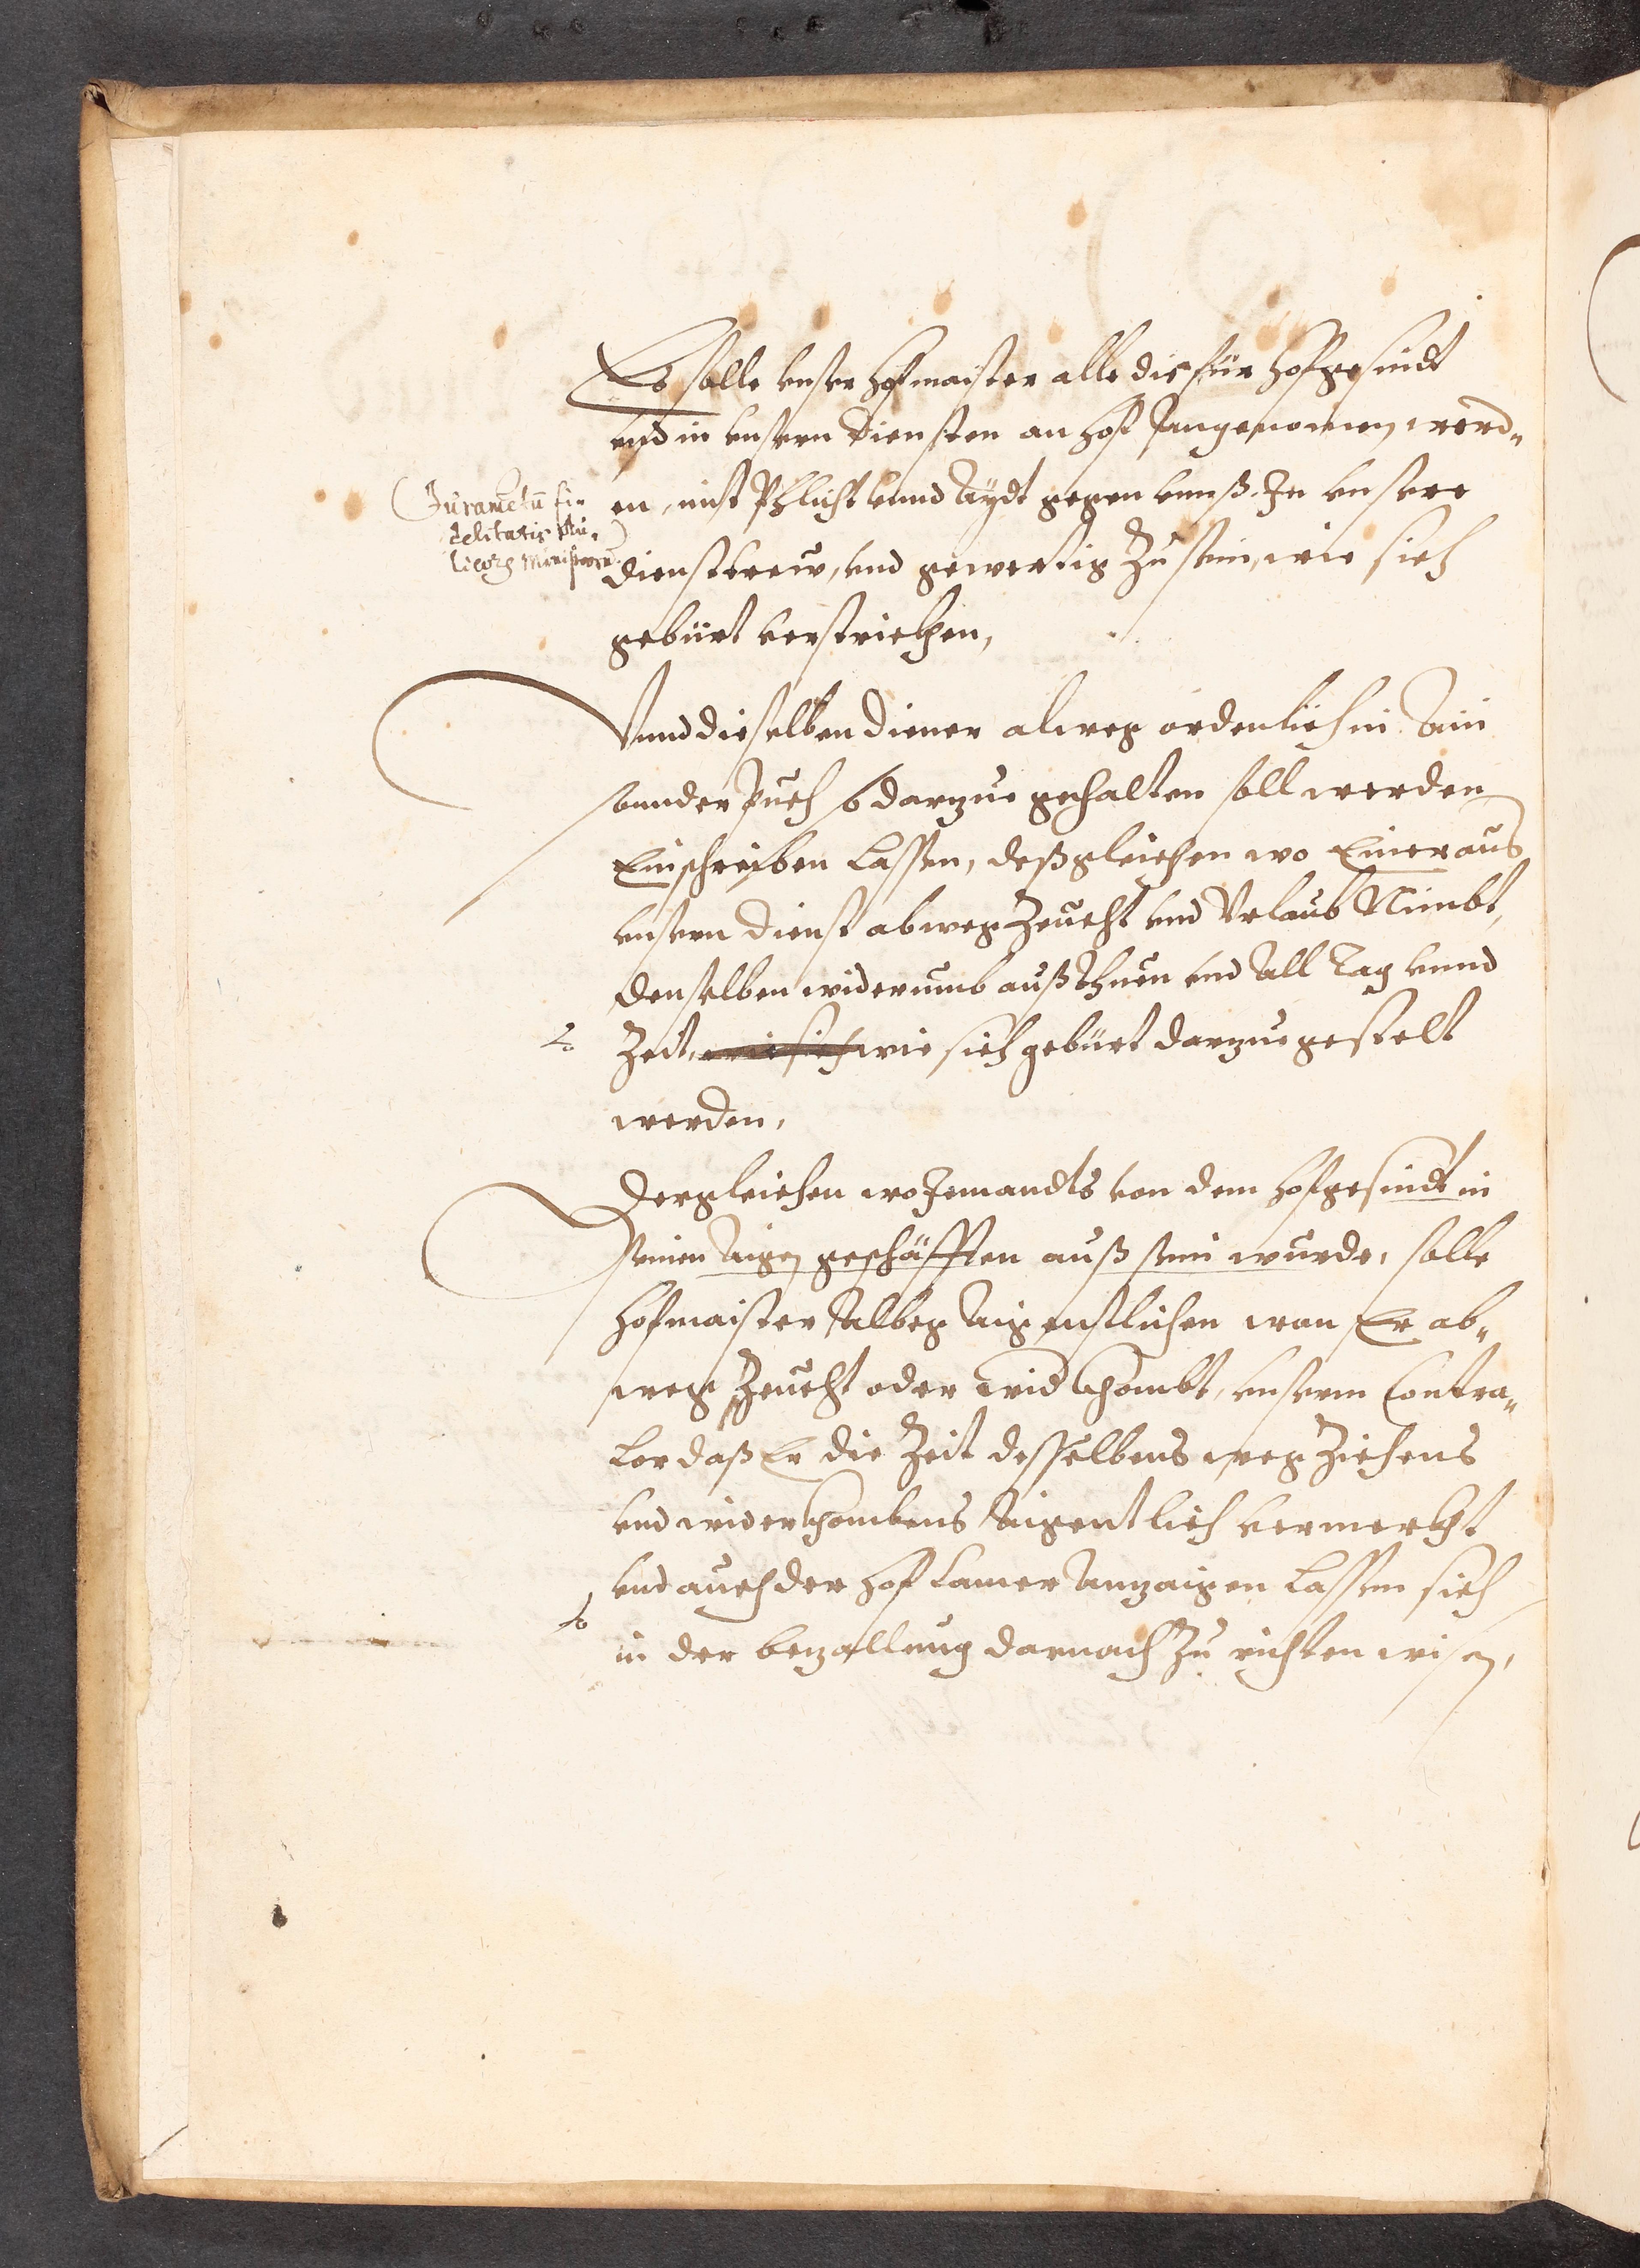 Es solle unser hofmaister alle die für hofgesindt
und in unsern Diensten an hof Angenomen werd„
en, mit Pflicht unnd Aydt gegen unnß. In unsere
dienst trew, und gewertig Zu sein, wie sich
gebürt verstrickhen,
Juramētū fi-
delitatis Au-
licorum Ministrorū.
Unnd dieselben diener alweg ordenlich in Ain
sonnder Puech so darzue gehalten soll werden
Einschreiben lassen, deßgleichen wo Einer aus
unserm dienst abweg Zeucht und Urlaub Nimbt,
denselben widerumb auß thuen und All Tag unnd
Zeit, wie sich wie sich gebürt darzue gestelt
werden,
Dergleichen wo Jemandts von dem hofgesindt in
seinen Aigen geschäfften auß sein wurde, solle
hofmaister Albeg Aigenstlichen wan Er ab„
weg Zeucht oder wid khombt, unserm Contra„
lor daß Er die Zeit desselbens weg Ziehens
und widerkhombens Aigentlich vermerkht
und auch der hof Camer Anzaigen lassen sich
in der bezallung darnach Zu richten wisen,